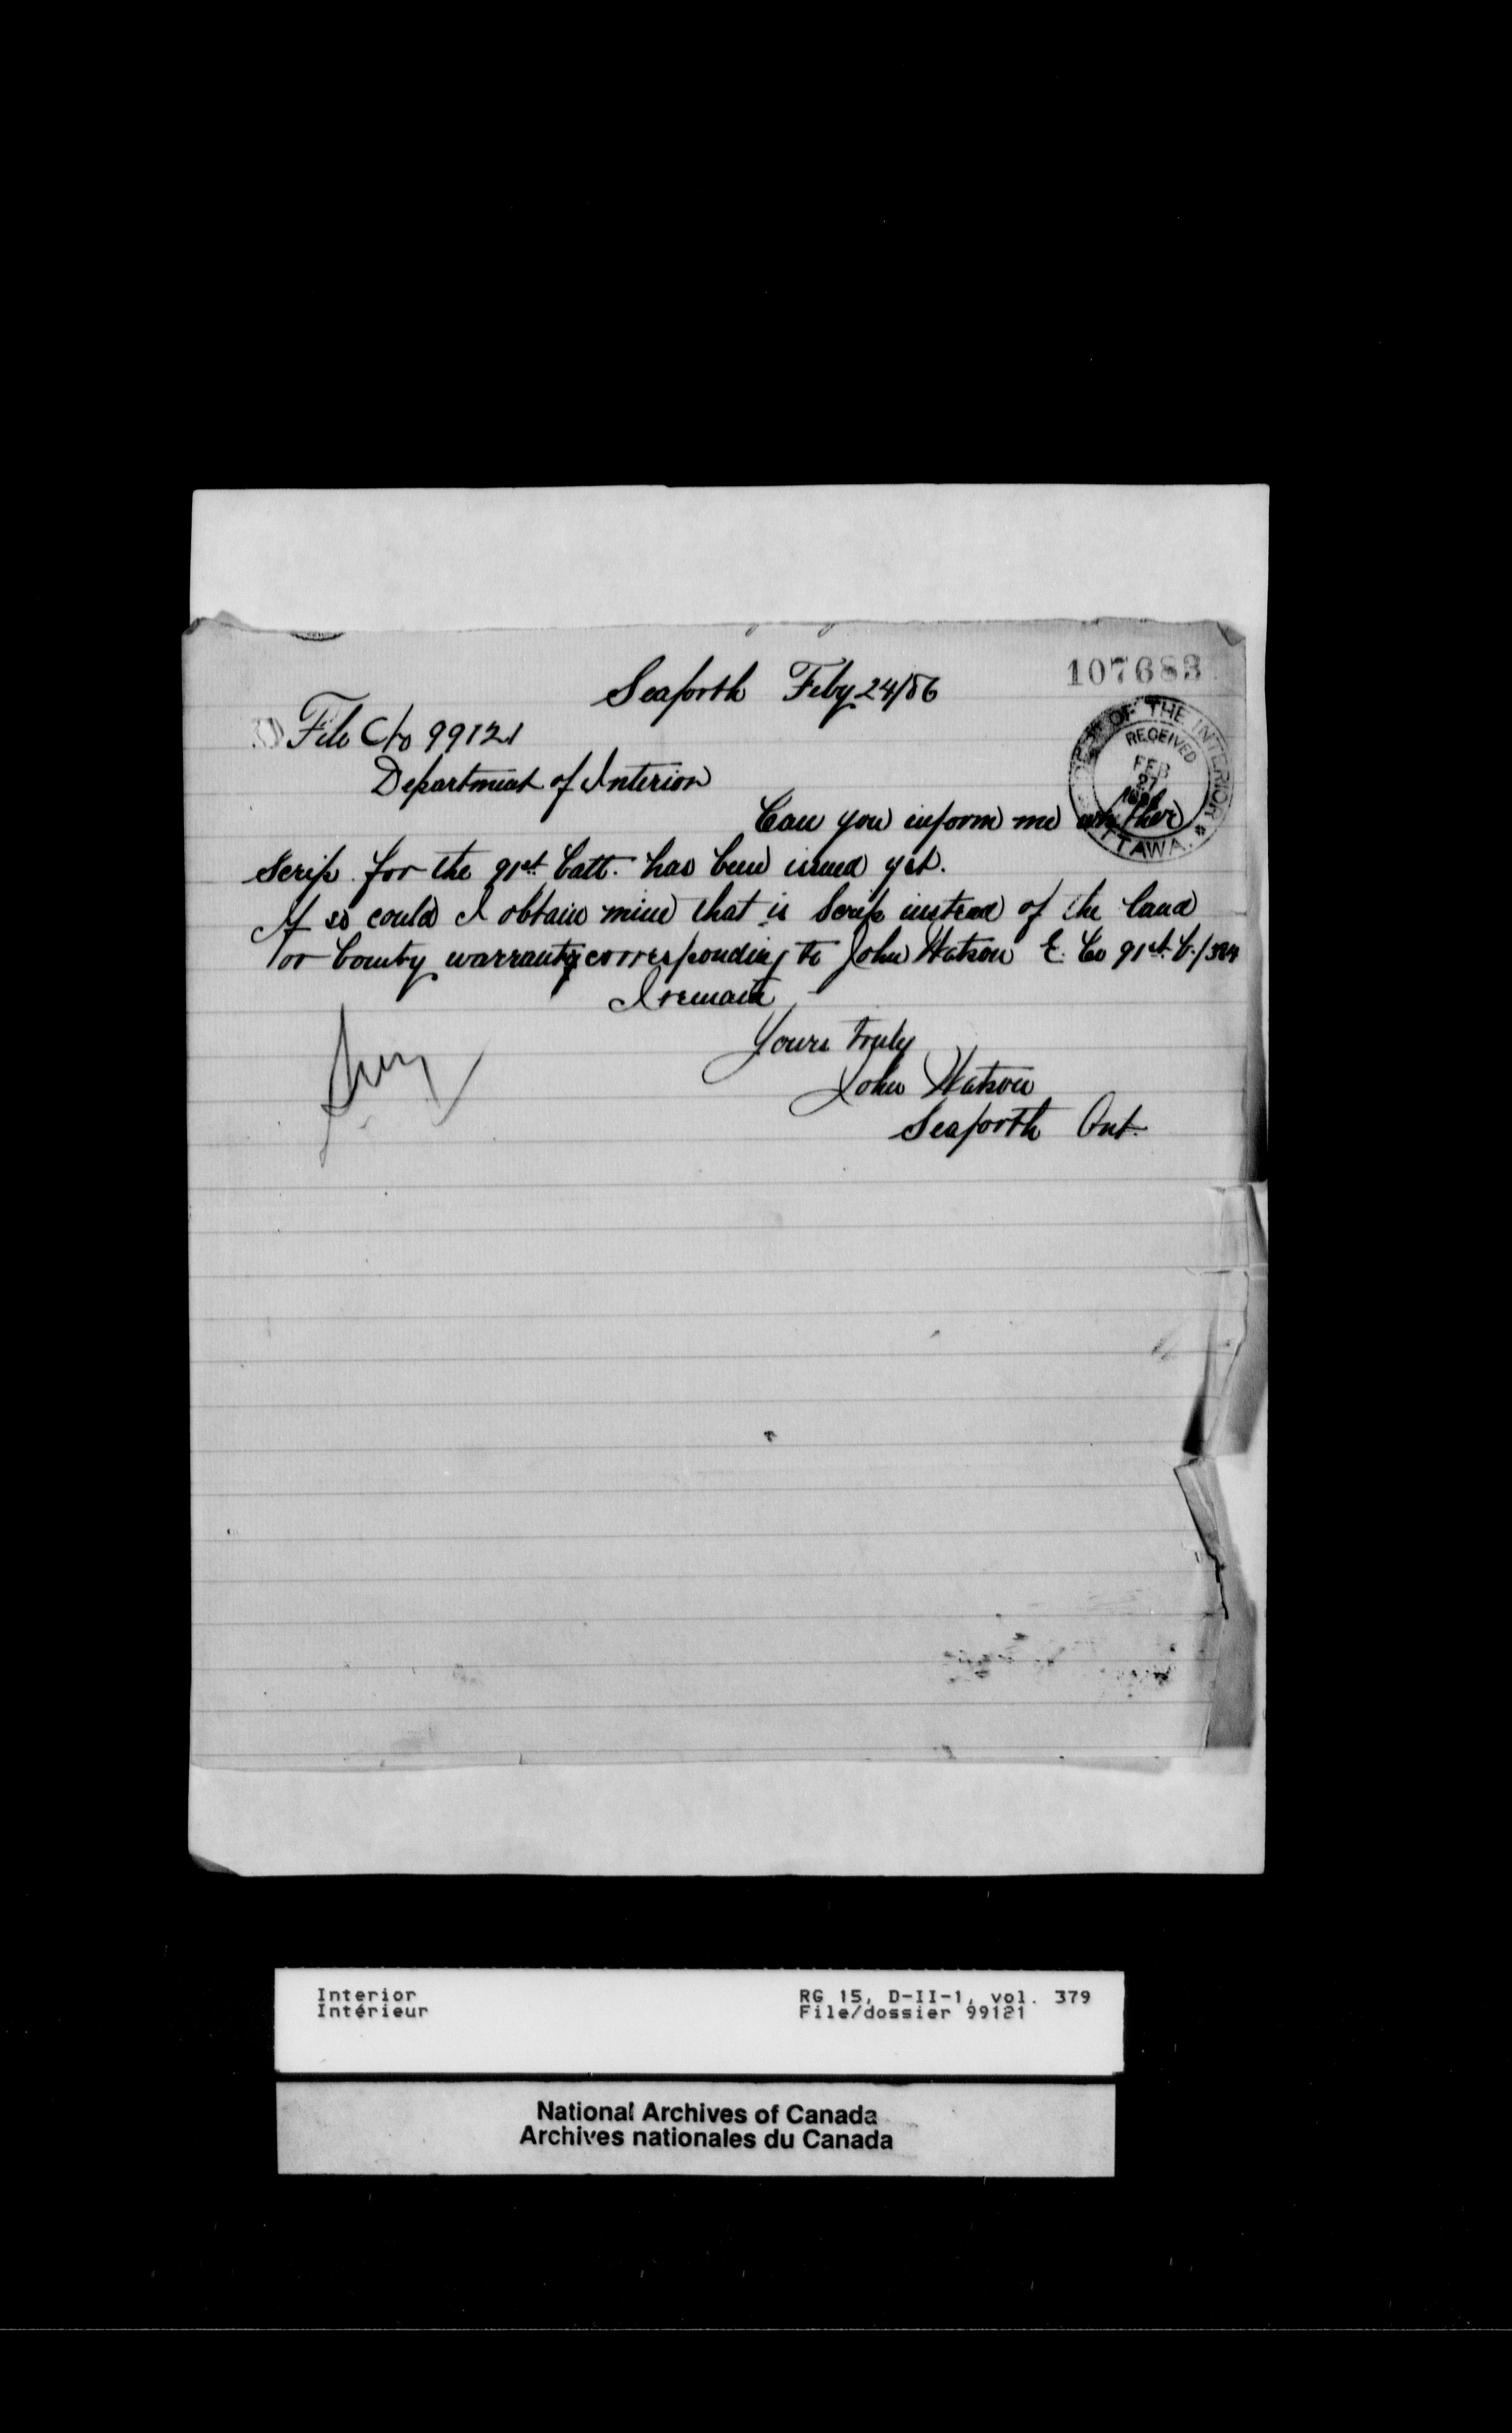 107683
Seaforth Feby 24/86
File No 99121
DEPT OF THE INTERIOR
RECEIVED
FEB
27
1886
OTTAWA.
Department of Interior
Can you inform me whether
scrip for the 91st Batt. has been issued yet.
If so could I obtain mine that is Scrip instead of the land
or bounty warranty corresponding to John Watson E. Co 91st B.
I remain
Yours truly
John Watson
Seaforth Ont.
Interior
Intérieur
RG 15, D-II-1, vol. 379
File/dossier 99121
National Archives of Canada
Archives nationales du Canada